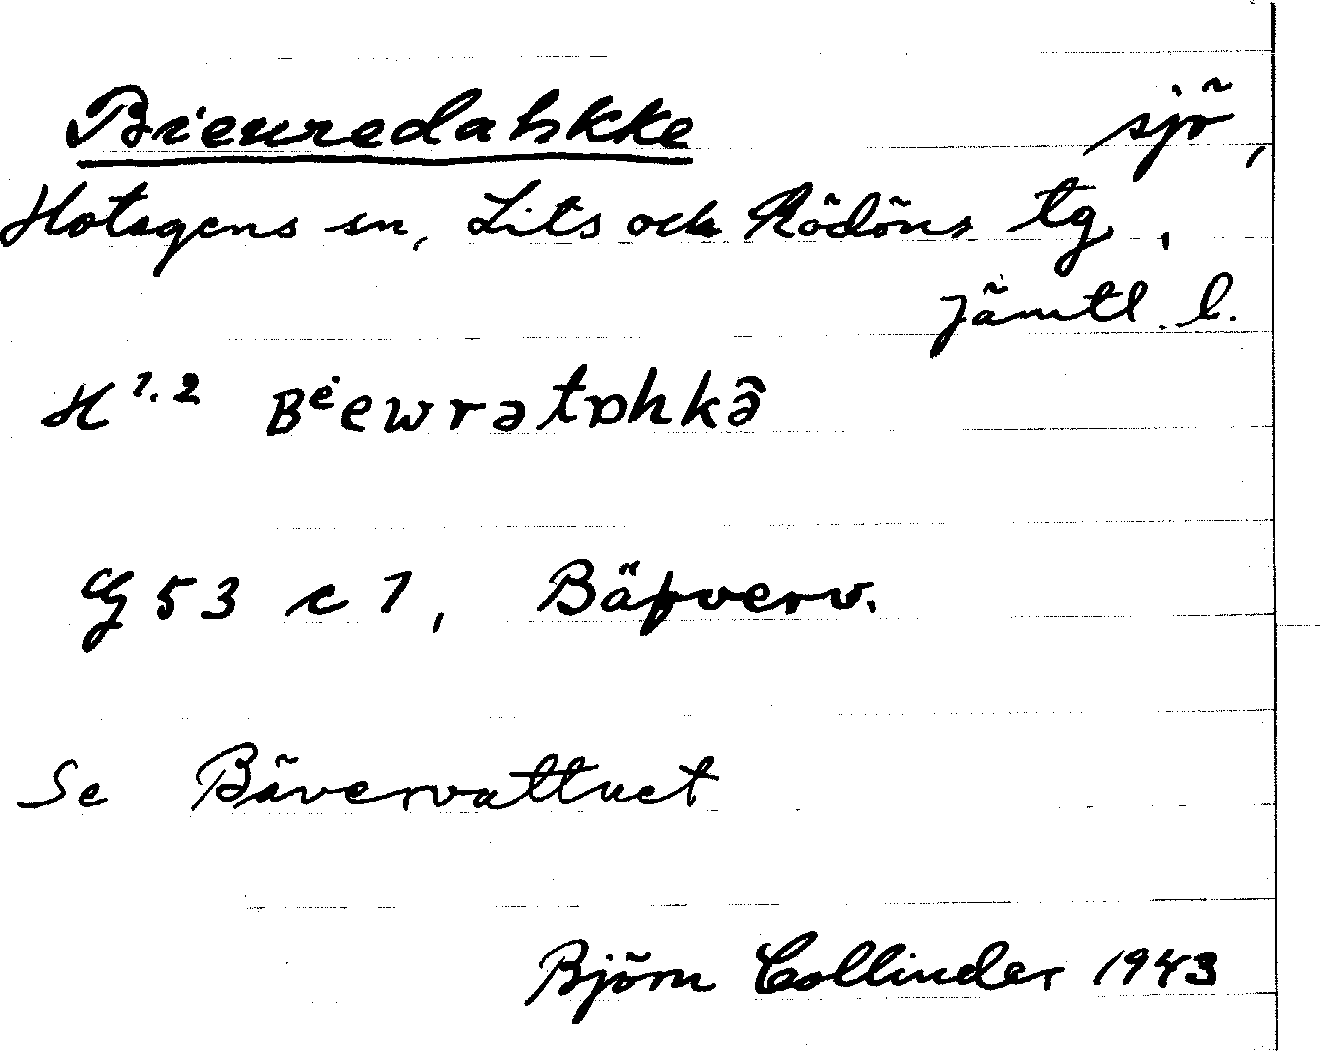 Bieuredahkke sjö,
Hotagens sn, Lits och Rödöns tg,
Jämtl. l.
H 1.2 Bėewrətɒhkə̂
G 53 c 1, Bäfverv.
Se Bävervattnet
Björn Collinder 1943